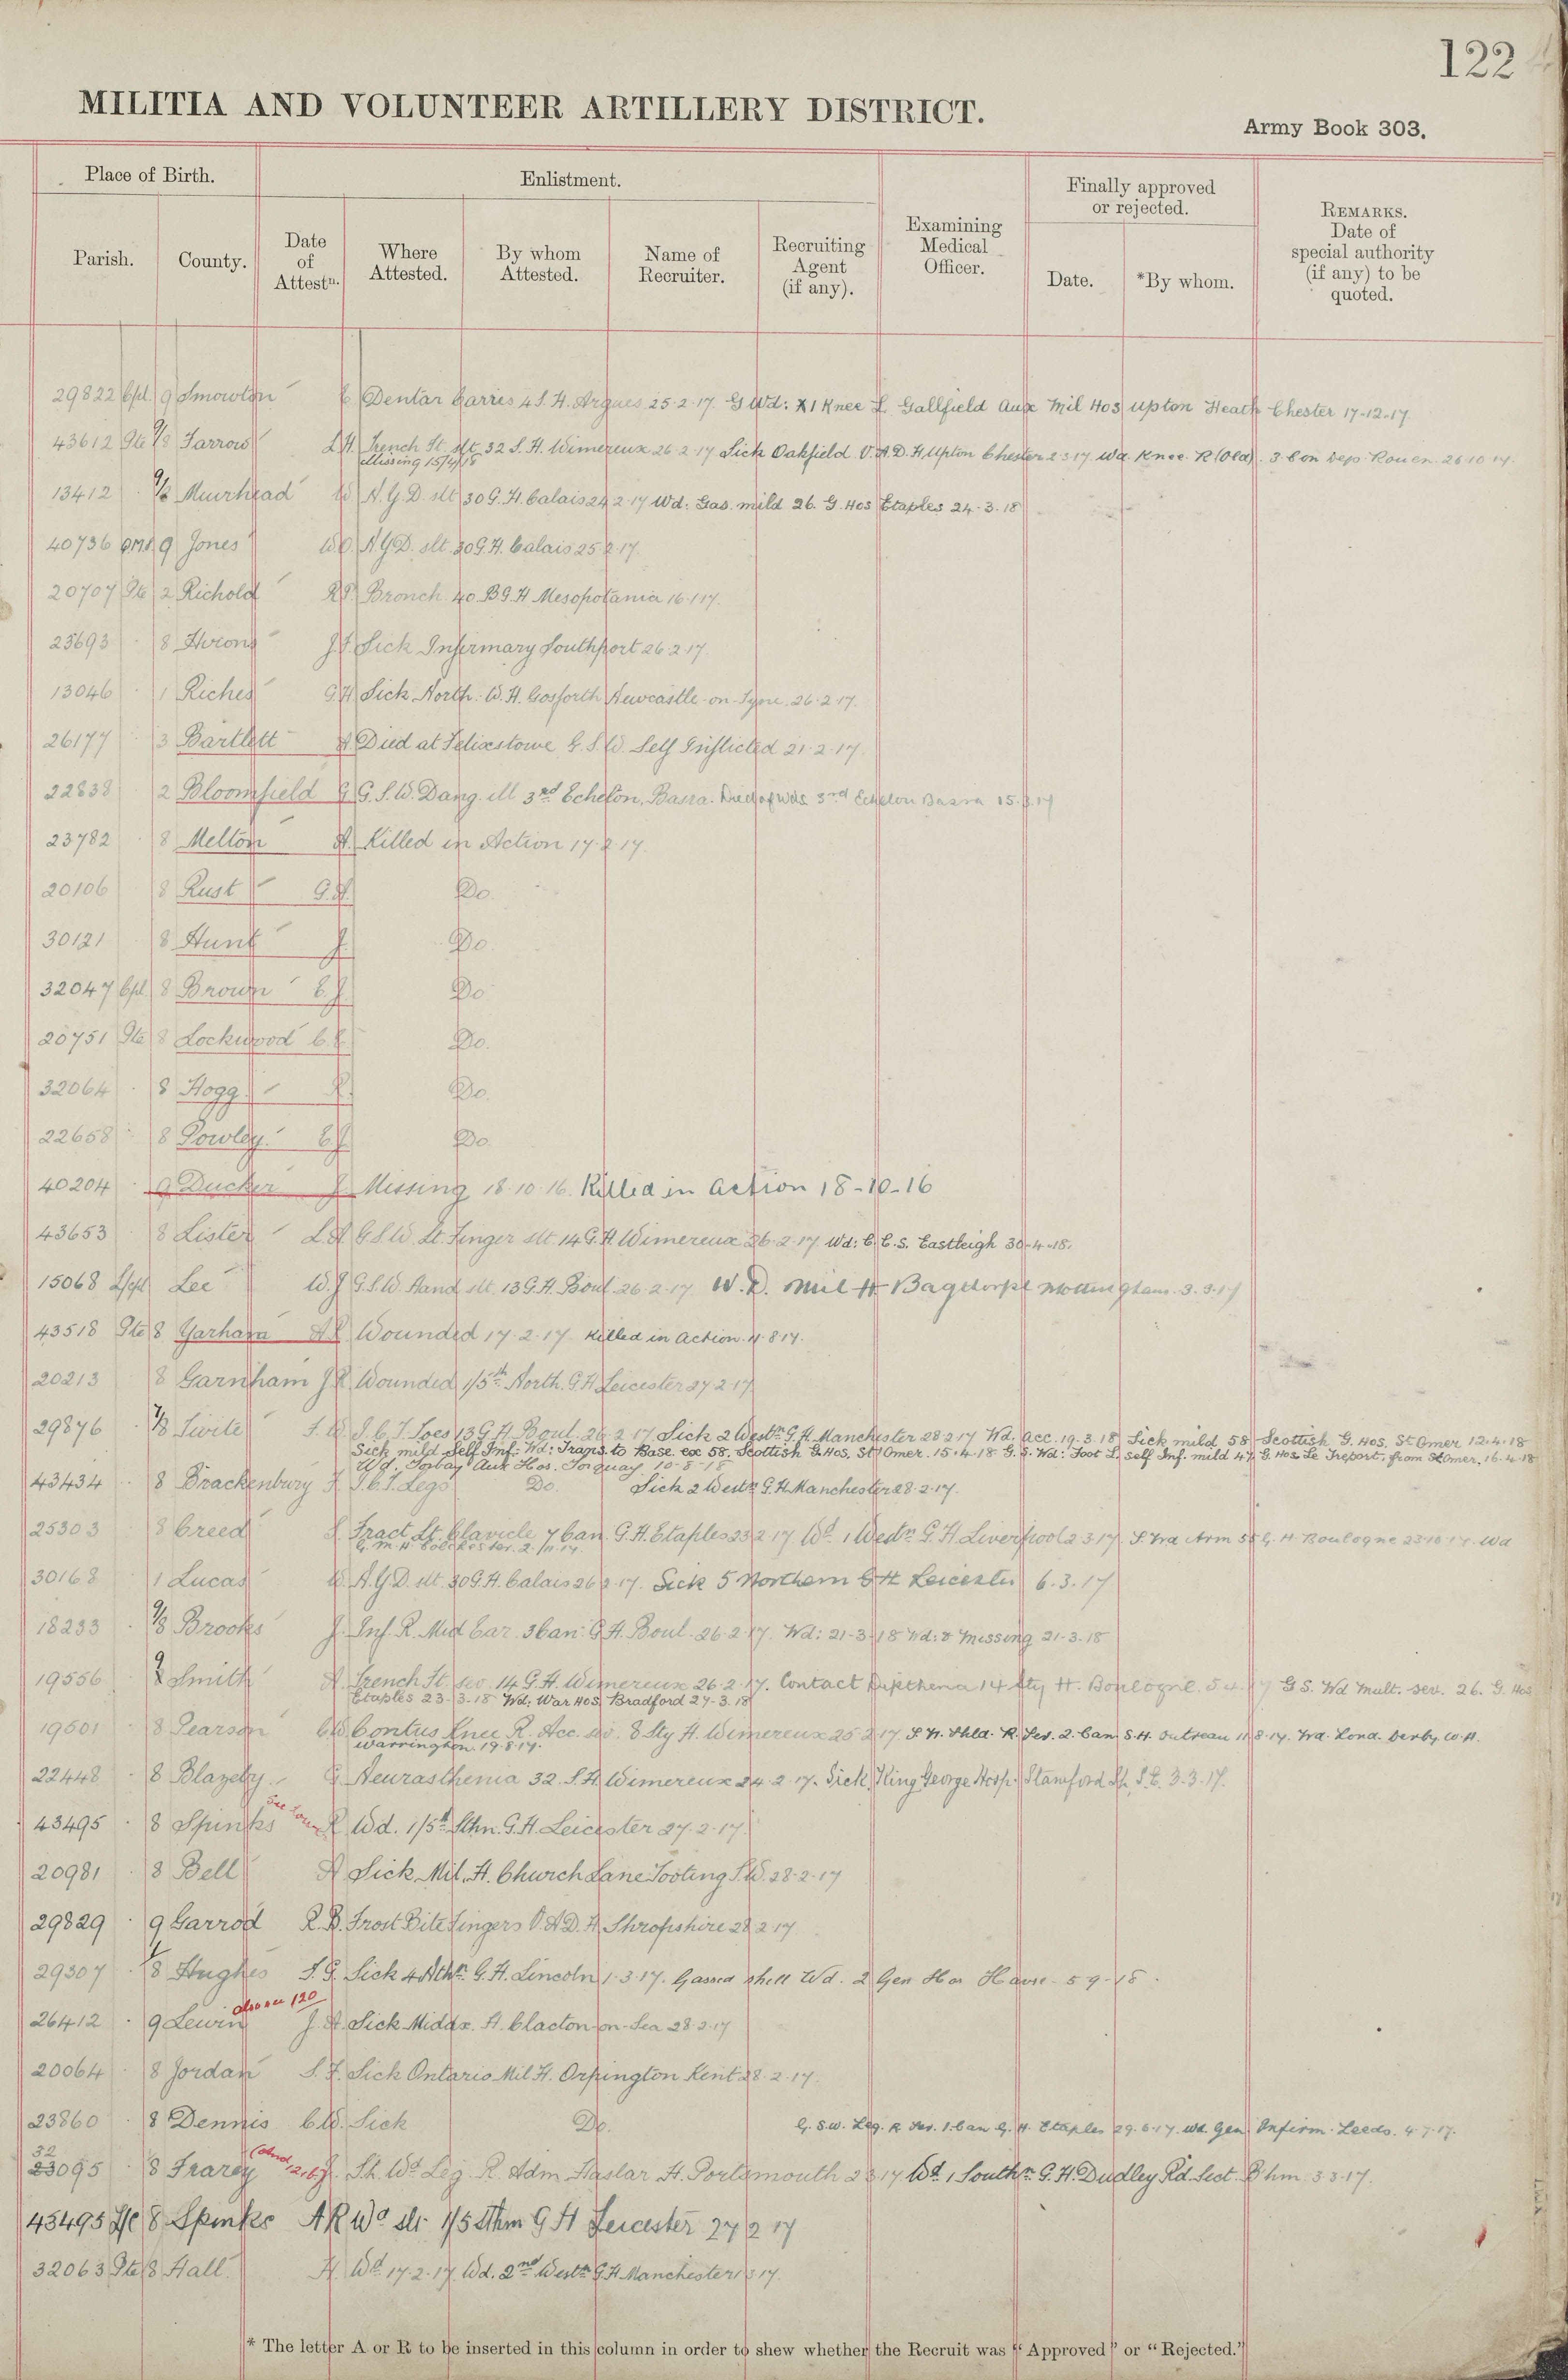 122
MILITIA AND VOLUNTEER ARTILLERY DISTRICT.
Army Book 303.
Place of Birth.
Enlistment.
Finally approved or rejected.
Parish.
County.
Date of Attestn.
Where Attested.
By whom Attested.
Name of Recruiter.
Recruiting Agent (if any).
Examining Medical Officer.
Date.
*By whom.
REMARKS. Date of special authority (if any) to be quoted.
29822 Cpl 9 Smowton E Dentar Carries 4 S.H. Arques 25.2.17. G Wd: X1 Knee L. Gallfield Aux Mil Hos Upton Heath Chester 17-12-17.
43612 Pte 7/8 Farrow L.H. Trench Ft. slt 32 S.H. Wimereux 26.2.17 Sick Oakfield V.A.D.H. Upton Chester 2.3.17 Wd Knee R (Old). 3 Con Depo Rouen 26.10.17.
Missing 15/4/18
13412 Muirhead W N.Y.D. slt 30 G.H. Calais 24.2.17 Wd: Gas. mild 26. G. Hos Etaples 24.3.18
40736 QMS 9 Jones W.O. N.Y.D. slt. 30 G.H. Calais 25.2.17.
20707 Pte 2 Richold R.P. Bronch 40 B.G.H Mesopotamia 16.1.17.
23693 8 Throng J.F. Sick Infirmary Southport 26.2.17.
13046 1 Riches G.H. Sick North. W.H. Gosforth Newcastle-on-Tyne. 26.2.17.
26177 3 Bartlett A. Died at Felixstowe G.S.W. Self Inflicted 21.2.17.
22838 2 Bloomfield G G.S.W. Dang. ill 3rd Echelon, Basra. Died of wds 3rd Echelon Basra 15.2.17
23782 8 Melton A. Killed in Action 17.2.17.
20106 8 Rust G.H. Do.
30121 8 Hunt J. Do
32047 Cpl 8 Brown E.J. Do
20751 Pte 8 Lockwood C.E. Do.
32064 8 Hogg R. Do.
22658 8 Powley E.J. Do.
40204 9 Ducker J Missing 18.10.16. Killed in action 18-10-16
43653 8 Lister L.A G.S.W. Lt. Finger slt 14 G.H Wimereux 26.2.17 Wd: C.C.S. Eastleigh 30-4-18.
15068 L/Cpl Lee W.J G.S.W. Hand slt. 13 G.H. Boul. 26.2.17 W.D. Mil H Bagthorpe Nottingham. 3.3.17
43518 Pte 8 Yarham A.R Wounded 17.2.17 Killed in action. 11.8.17.
20213 8 Garnham J.R. Wounded 1/5th North. G.H Leicester 27.2.17
29876 7/8 Twite F.W. I.C.T. Toes 13 G.H Boul. 26.2.17 Sick 2 Westn G.H. Manchester 28.2.17 Wd. Acc. 19.3.18 Sick mild 58 Scottish G. Hos. St Omer 12.4.18
Sick mild Self Inf: Wd: Trans. to Base. ex 58. Scottish G. Hos. St Omer. 15.4.18 G.S. Wd: Foot L. Self Inf. mild 47 G. Hos Le Treport, from St Omer. 16.4.18
Wd. Torbay Aux Hos. Torquay 10-5-18
43434 8 Brackenbury F I.C.T. Legs Do. Sick 2 Westn G.H. Manchester 28.2.17.
25303 8 Creed Fract. Lt. Clavicle 7 Can. G.H. Etaples 23.2.17 Wd. 1 Westn G.H. Liverpool 2.3.17. Arm 55 G.H. Boulogne 23.10.17. Wd
G.M.H Colchester. 2/11.17.
30168 1 Lucas W. N.Y.D. slt. 30 G.H. Calais 26.2.17. Sick 5 Northern G H Leicester 6.3.17
18233 9/8 Brooks J. Inf. R. Mid Ear. 3 Can. G.H. Boul. 26.2.17. Wd: 21-3-18 Wd: & Missing 21-3-18
19556 Smith A. Trench Ft. sev. 14 G.H. Wimereux 26.2.17. Contact Dipthena 14 Sty H. Boulogne. 5.4.17 G.S. Wd Mult. sev. 26. G. Hos
Etaples 23.3.18 Wd: War Hos. Bradford 27.3.18
19501 8 Pearson C.W. Contus Knee R. Acc. sev. 8 Sty H. Wimereux 25.2.17 S.W. Shld. R. Sev. 2. Can S.H. Outreau 11.8.17. Wd. Lond. Derby W.H.
Warrington. 19.8.17.
22448 8 Blazeby G Neurasthenia 32. S.H. Wimereux 24.2.17. Sick, King George Hosp. Stamford St. S.E. 3.3.17.
43495 8 Spinks See low R Wd. 1/5th Nthn. G.H. Leicester 27.2.17.
20981 8 Bell A Sick Mil. H. Church Lane Tooting S.W. 28.2.17
29829 9 Garrod R.B. Frost Bite Fingers V.A.D. H Shropshire 28.2.17
29307 8 Hughes S.G. Sick 4 Nthn G.H. Lincoln 1.3.17. Gassed shell Wd. 2 Gen Hos Havre. 5-9-18.
also see 120
26412 9 Lewin J.A. Sick Middx. H. Clacton-on-Sea 28.2.17
20064 8 Jordan S.F. Sick Ontario Mil H. Orpington Kent 28.2.17.
23860 8 Dennis C.W. Sick Do. G.S.W. Leg. R Sev. 1. Can G.H. Etaples 29.6.17. Wd Gen Infirm. Leeds. 4.7.17.
32
23095 8 Frarey J. Sh. Wd Leg R. Adm Haslar H. Portsmouth 2.3.17 Wd. 1 Southn G.H. Dudley Rd Sect. Bhm. 3.3.17.
43495 L/C 8 Spinks A R Wd slt 1/5 Nthn G H Leicester 27 2 17
32063 Pte 8 Hall. H. Wd 17.2.17. Wd. 2nd Westn G.H. Manchester 1.3.17.
* The letter A or R to be inserted in this column in order to shew whether the Recruit was “Approved” or “Rejected.”